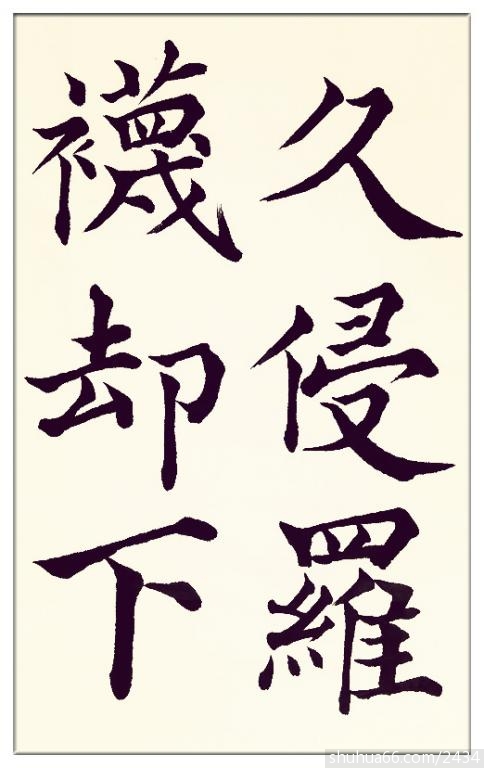 久侵羅
襪却下
shuhua66.com/2434